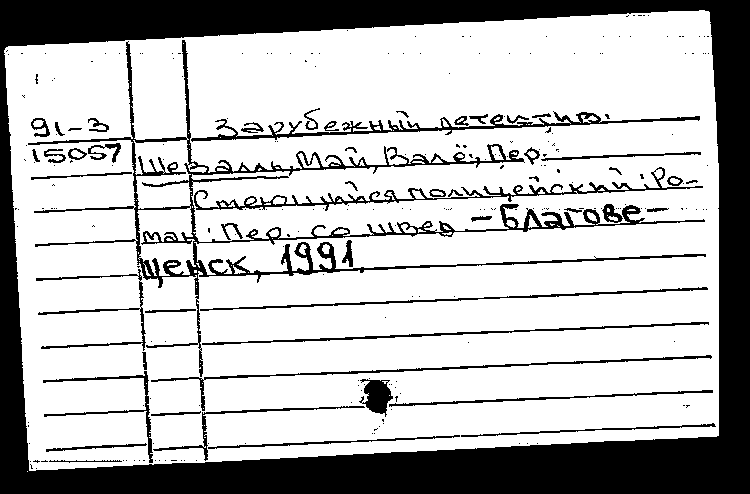 91-3 Зарубежный детектив.
15057 Шеваллъ, Май, Валё, Пер.
Смеющийся полицейский : Ро-
ман : Пер. со швед – Благове-
щенск, 1991.